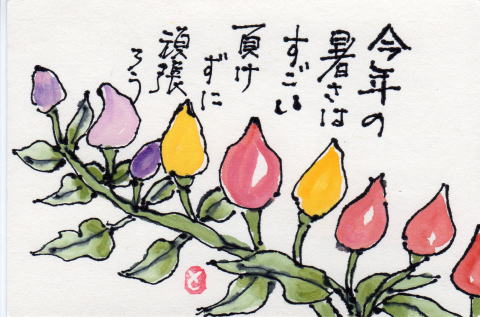 今年の
暑さは
すごい
負け
ずに
頑張
ろう